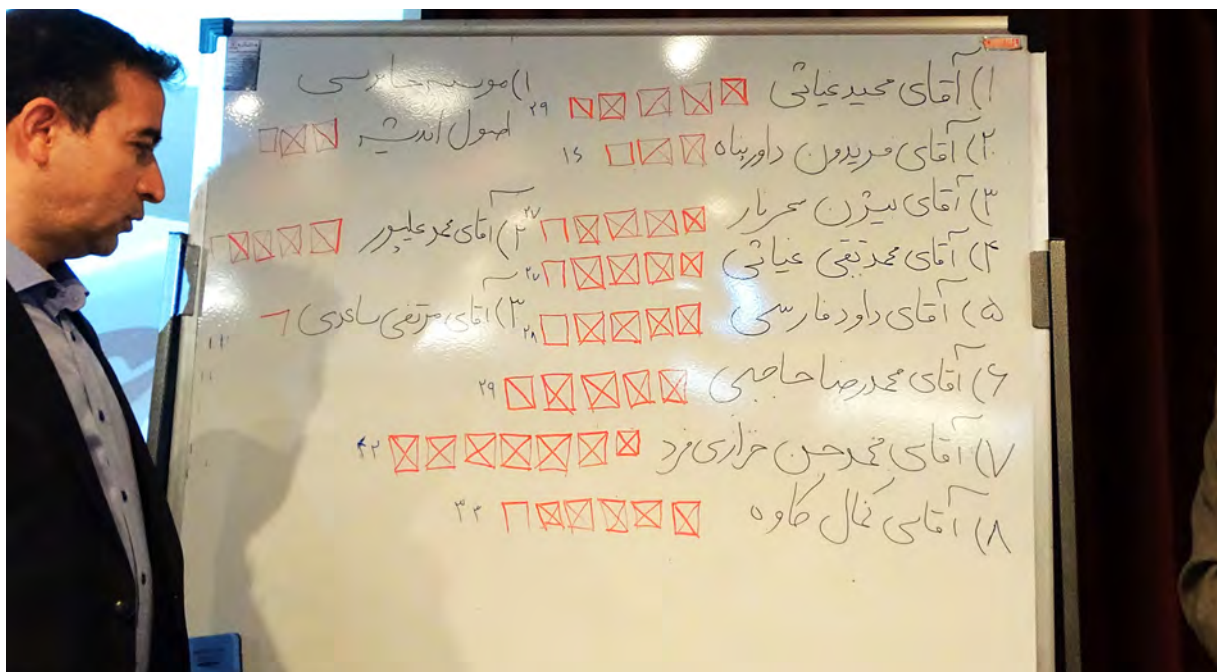 ۱) آقای مجید غیاثی ۲۹
۲) آقای فریدون داورپناه ۱۶
۳) آقای بیژن سحرناز ۲۷
۴) آقای محمدتقی غیاثی ۲۷
۵) آقای داود فارسی ۲۸
۶) آقای محمدرضا حاجبی ۲۹
۷) آقای محمدحسن خرازی فرد ۴۲
۸) آقای کمال کاوه ۳۲
۱) موسسه حسابرسی
اصول اندیشه
۲) آقای محمد علیپور
۳) آقای مرتضی ساعدی